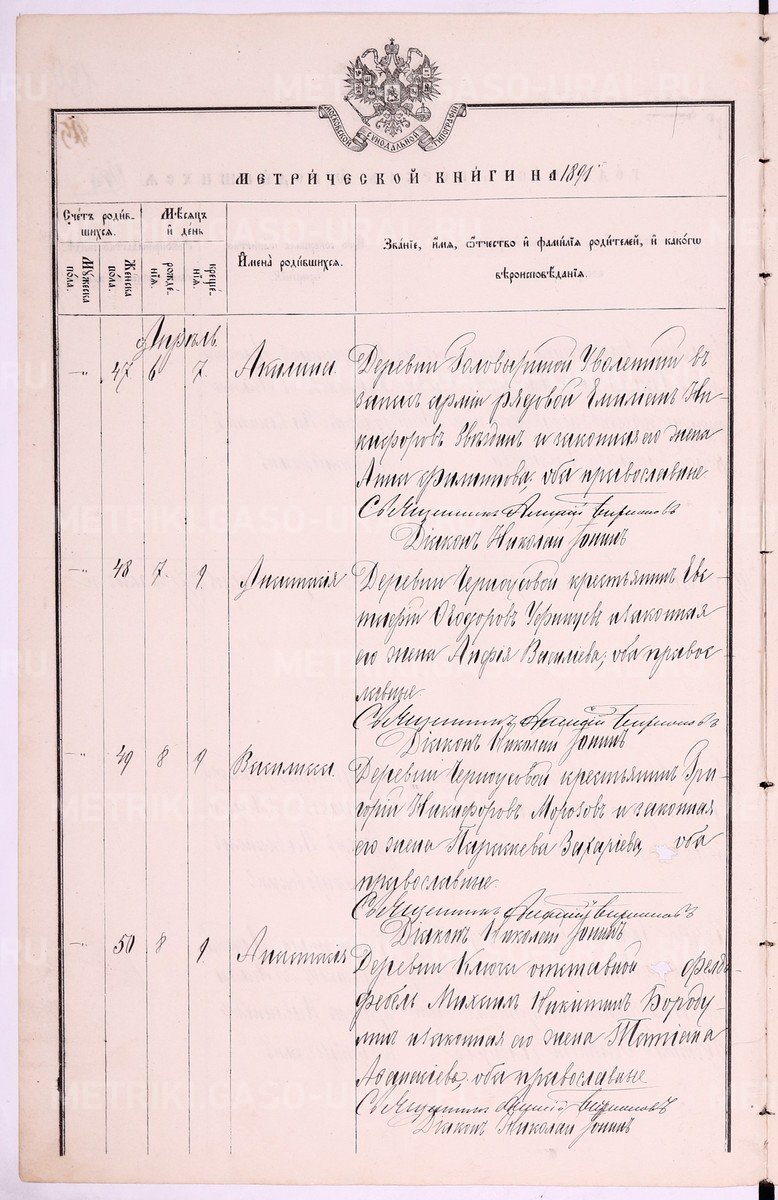 МОСКОВСКОЙ СУНОДАЛЬНОЙ ТИПОГРАФІИ
МЕТРИ́ЧЕСКОЙ КНИ́ГИ НА 1891
Сче́тъ роди́в-
шихся.
Му́жеска по́ла.
Же́нска по́ла.
Мѣ́сяцъ и де́нь
рожде́-нія.
креще́-нія.
Имена̀ роди́вшихся.
Зва́ніе, и́мя, ѻ҆́тчество и҆ фами́лія роди́телей, и҆ како́гѡ
вѣроисповѣ́данія.
Апрѣль
-"- 47 6 7. Акилина Деревни Головыриной Уволенный въ
запасъ арміи рядовой Емиліанъ Ни-
кифоровъ Звѣздинъ и законная его жена
Анна Филиппова, оба православные
Священникъ
Діаконъ Николай Іонинъ
-"- 48 7. 9. Анастасія Деревни Черноусовой крестьянинъ Ев-
Ѳеодоровъ и законная
его жена Анфія Василіева; оба правос-
лавные.
Священникъ
Діаконъ Николай Іонинъ
-"- 49 8 9 Василисса. Деревни Черноусовой крестьянинъ Гри-
горій Никифоровъ Морозовъ и законная
его жена Параскева Захаріева, оба
православные.
Священникъ
Діаконъ Николай Іонинъ
-"- 50 8 9 Анастасія Деревни Ключи отставной фельд-
фебель Михаилъ Никитинъ Бороду-
линъ и законная его жена Татіана
Аѳанасіева, оба православные
Священникъ
Діаконъ Николай Іонинъ
METRIKI.GASO-URAL.RU